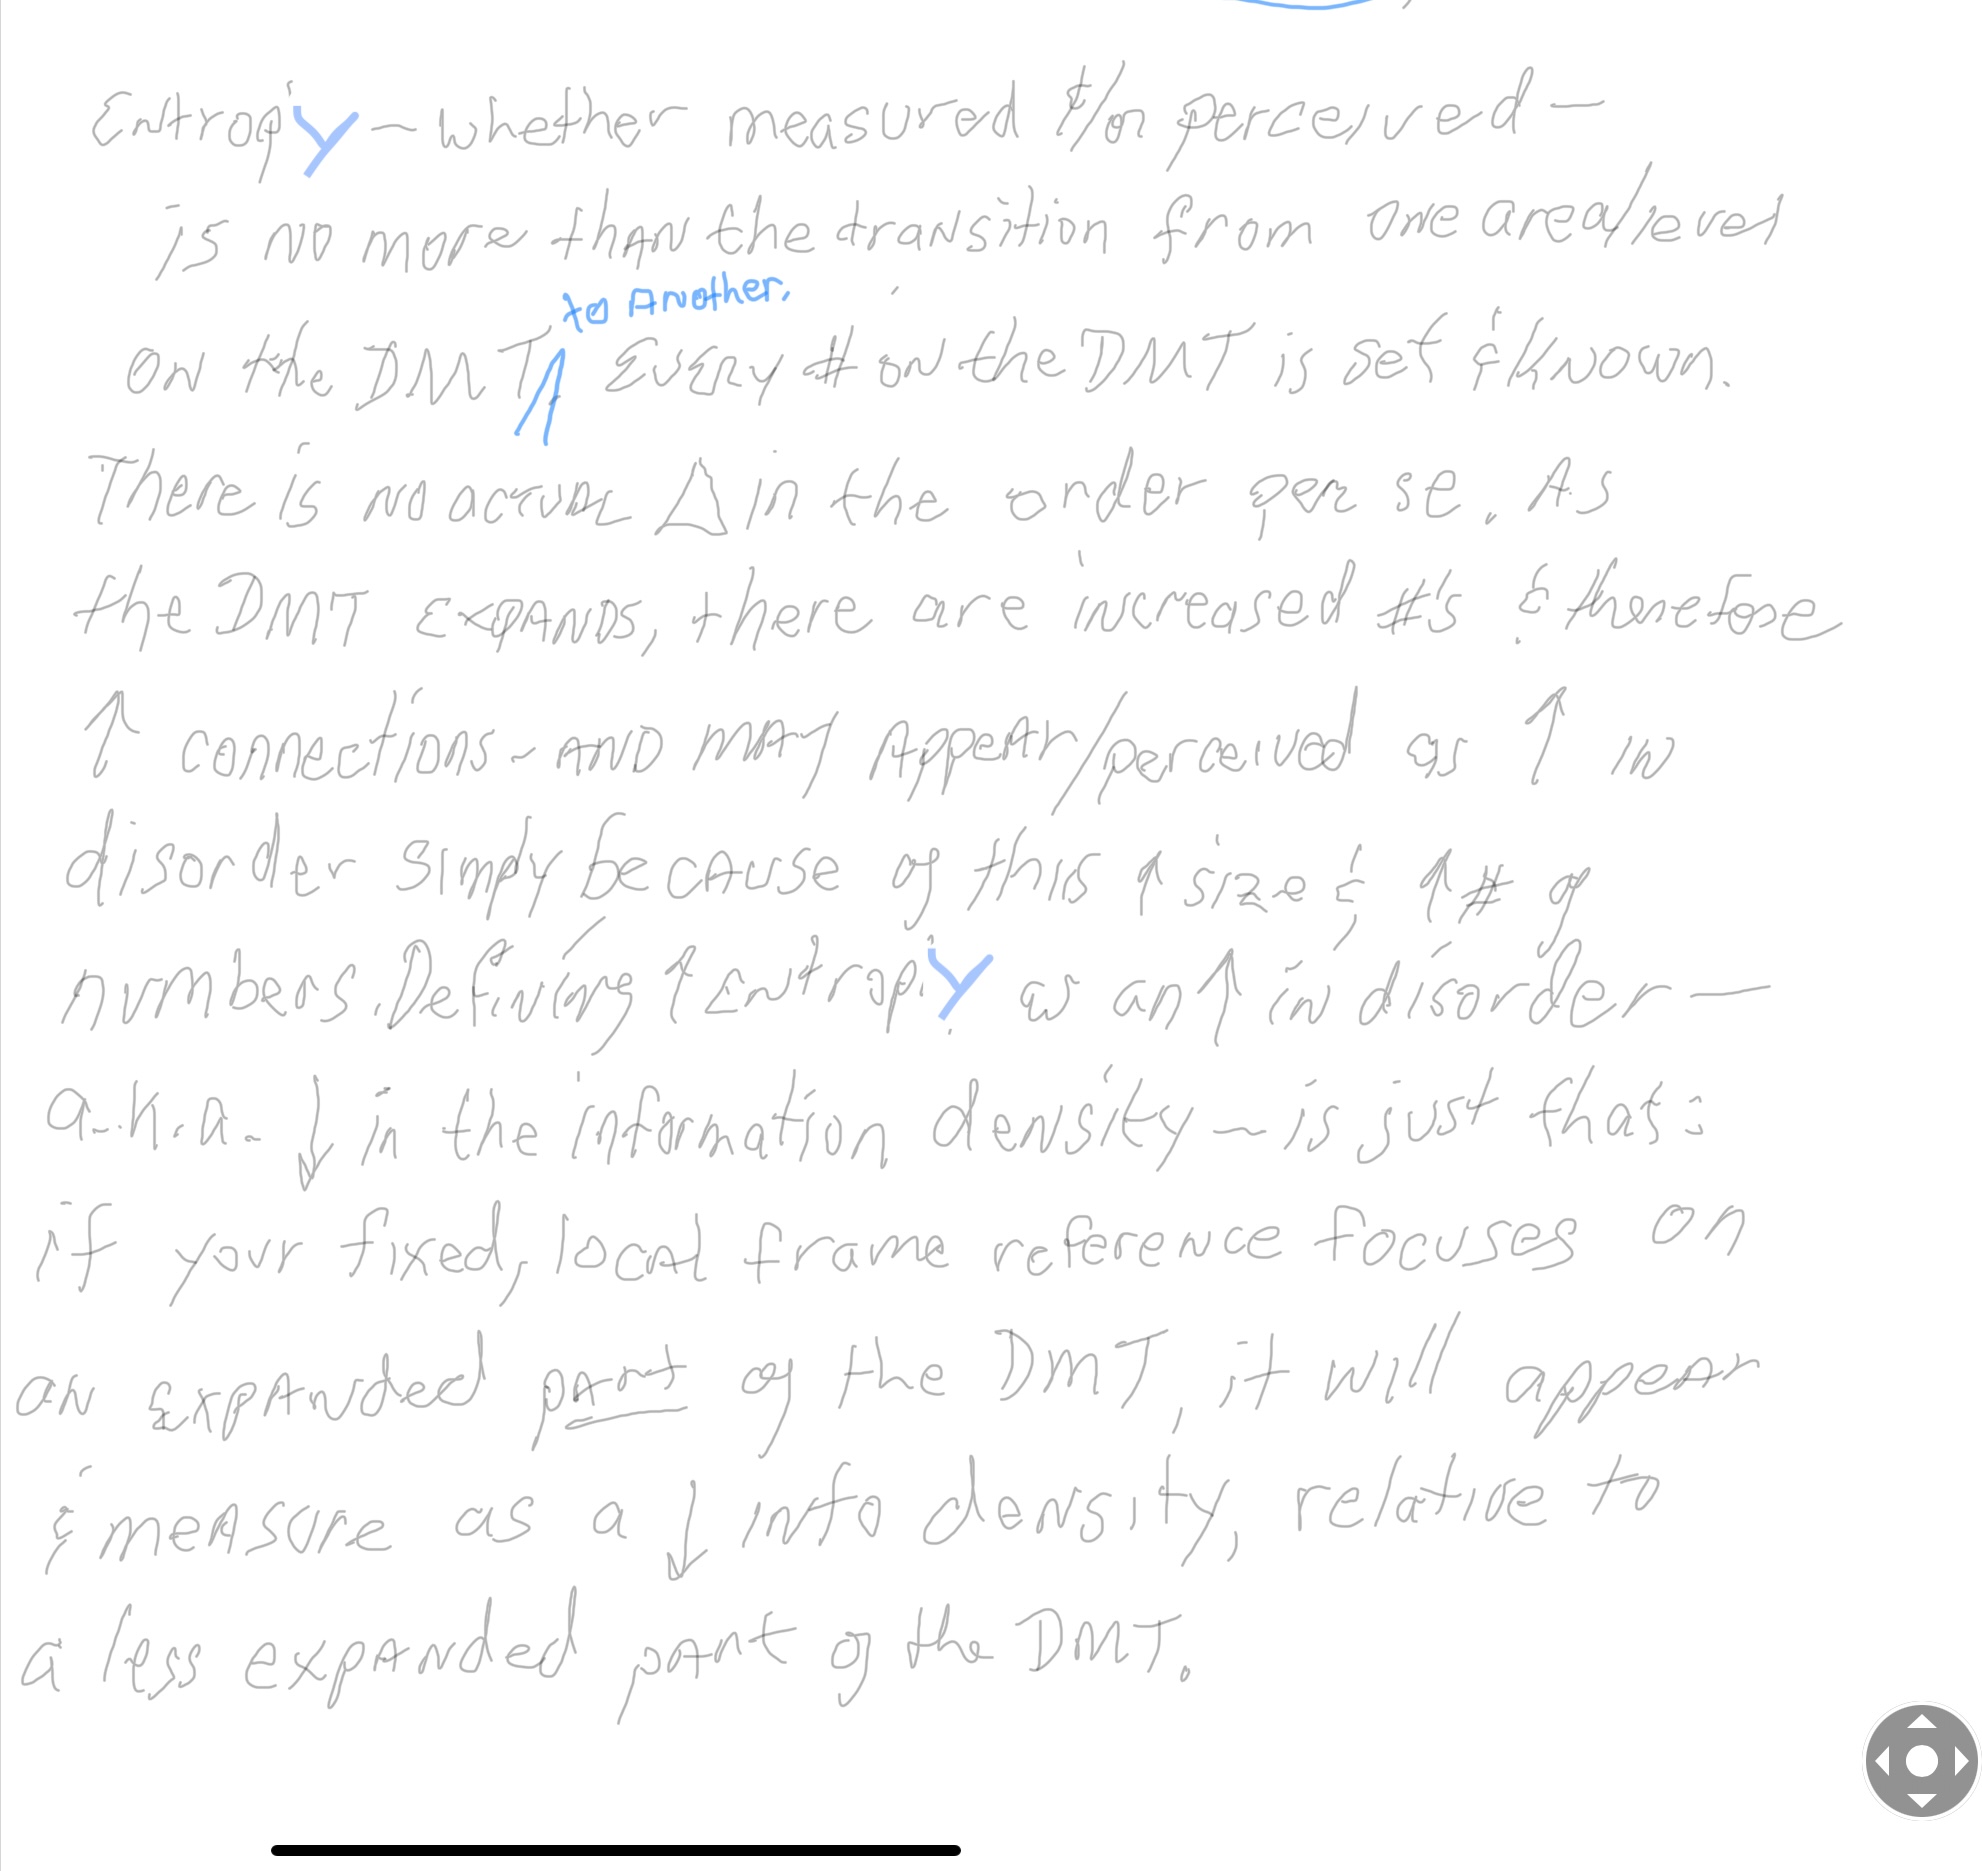 Entropy — whether measured &/or perceived —
is no more than the transition from one area/level
to Another,
on the DMT. Every pt. on the DMT is set & known.
There is no actual Δ in the order, per se. As
the DMT expands, there are increased pts & therefore
↑ connections - and may appear/perceived as ↑ in
disorder simply because of this ↑ size & ↑ # of
numbers. Defining ↑ Entropy as an ↑ in disorder —
a.k.a. ↓ in the information density — is just that:
if your fixed, local frame reference focuses on
an expanded part of the DMT, it will appear
& measure as a ↓ info density, relative to
a less expanded part of the DMT.